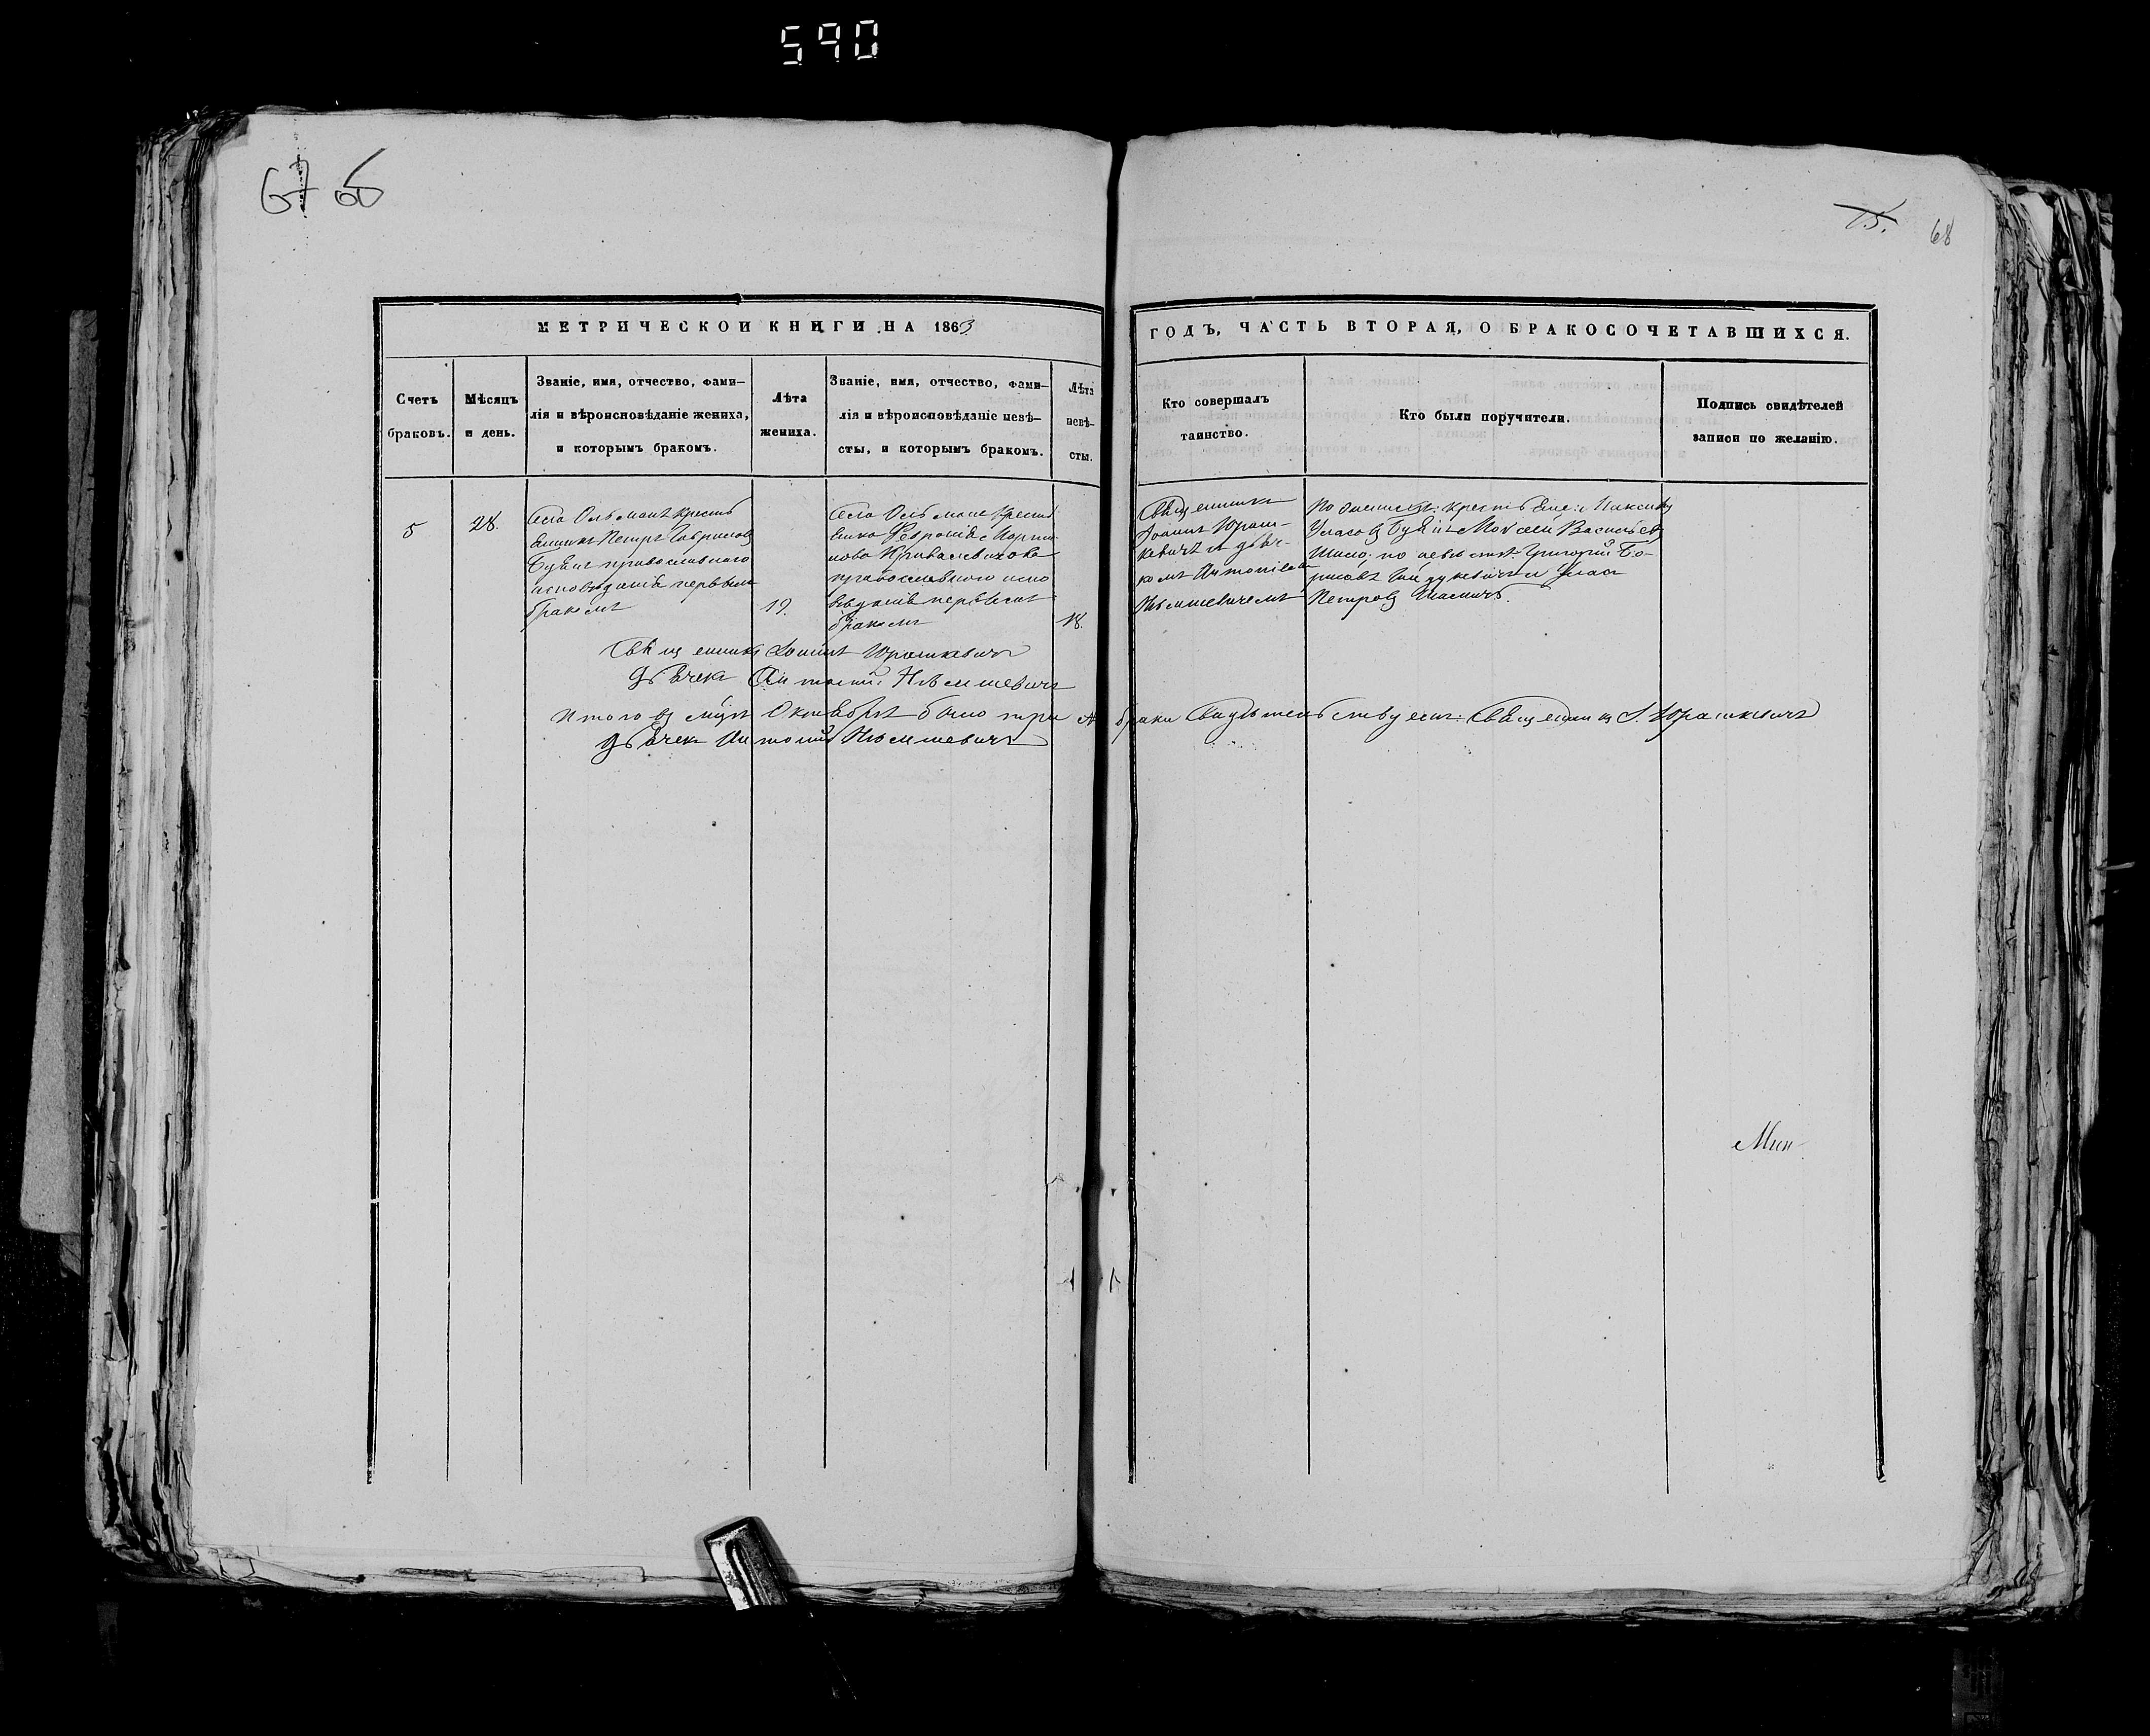 590
67 об
75.
68
МЕТРИЧЕСКОЙ КНИГИ НА 1863
ГОДЪ, ЧАСТЬ ВТОРАЯ, О БРАКОСОЧЕТАВШИХСЯ.
Счетъ
браковъ.
Мѣсяцъ
и день.
Званіе, имя, отчество, фами-
лія и вѣроисповѣданіе жениха,
и которымъ бракомъ.
Лѣта
жениха.
Званіе, имя, отчество, фами-
лія и вѣроисповѣданіе невѣ-
сты, и которымъ бракомъ.
Лѣта
невѣ-
сты.
Кто совершалъ
таинство.
Кто были поручители.
Подпись свидѣтелей
записи по желанію.
5
28.
Села Ольманъ крестъ
янинъ Петръ Гавриловъ
православнаго
исповѣданія первымъ
бракомъ
19.
Села Ольманъ крестья
янка Февронія
православнаго испо
вѣданія первымъ
бракомъ
18.
Священникъ
Іоаннъ Юраш-
кевичъ и дьяч-
комъ Антоніемъ
Нѣмшевичемъ
По женихѣ: крестьяне: Максимъ
Уласовъ и Моѵсей Васильевъ
по невѣстѣ: Григорій Бо-
рисовъ и Уласъ
Петровъ
Священникъ Іоаннъ Юрашкевичъ
Дьячекъ Антоній Нѣмшевичъ
Итого въ мцѣ Октябрѣ было три браки Свидѣтельствуемъ: Священникъ І. Юрашкевичъ
Дьячекъ Антоній Нѣмшевичъ
Мин